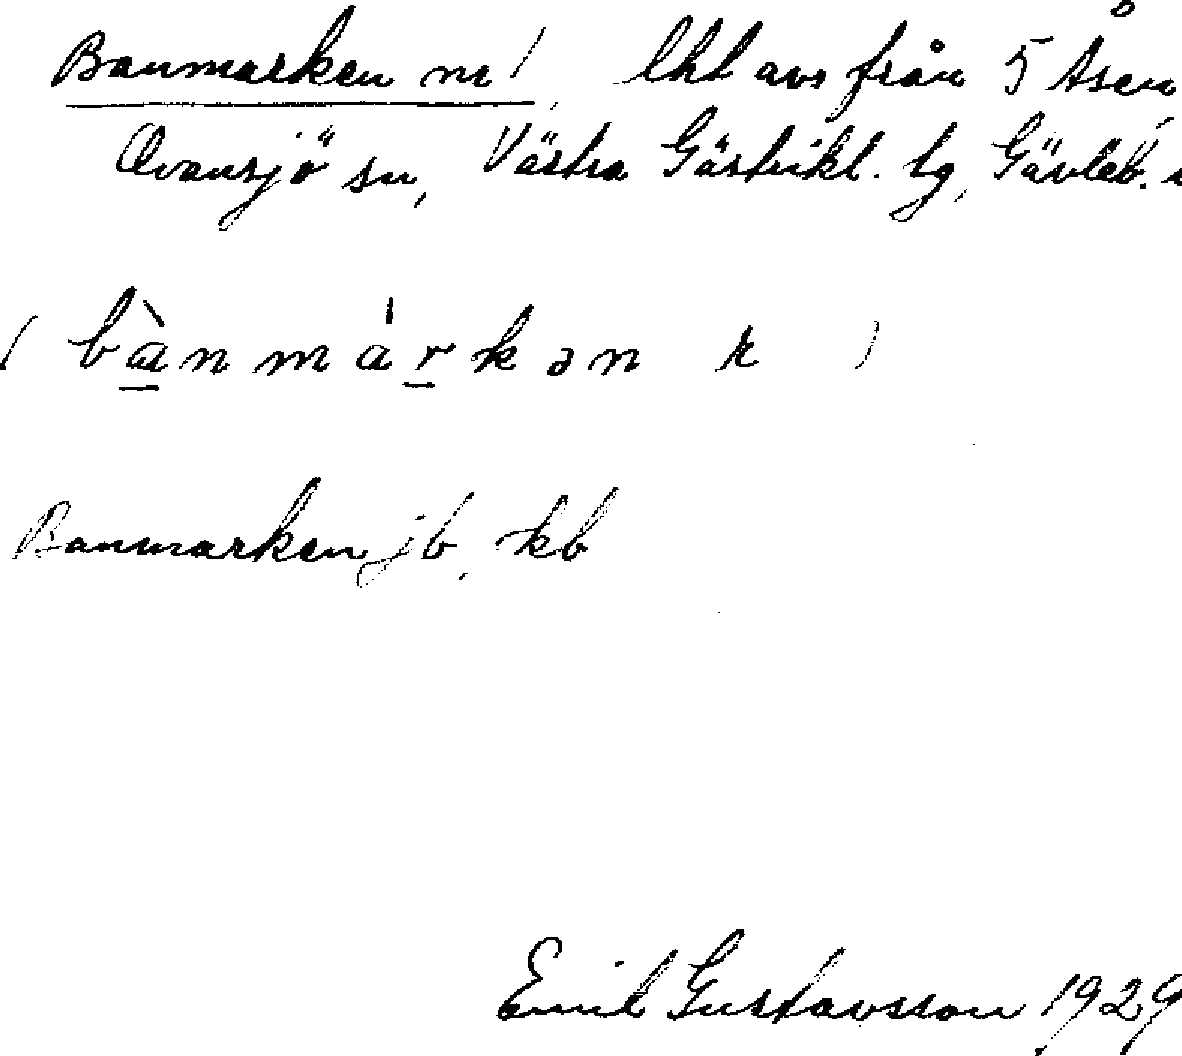 Banmarken m/, lht avs från 5 Åsen,
Ovansjö sn, Västra Gästrikl. tg, Gävleb.
( bànmárkən k )
Banmarken jb, kb
Emil Gustavsson 1929